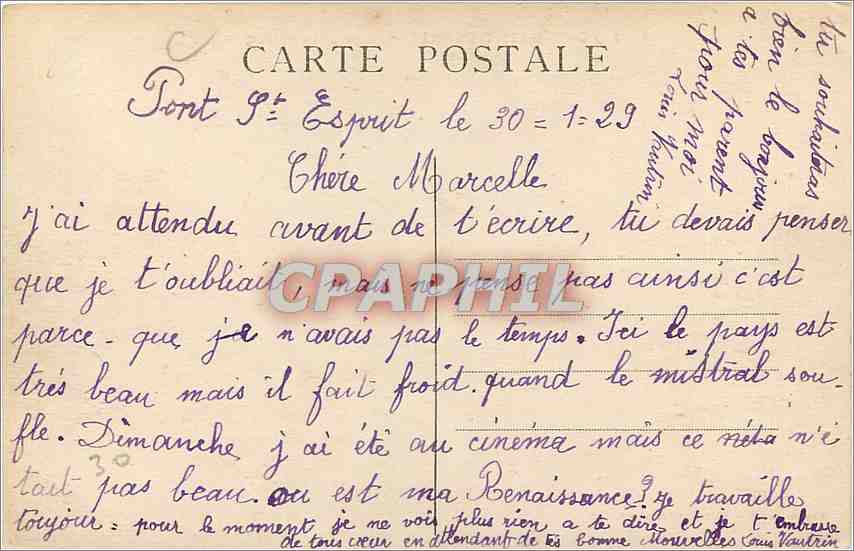 CARTE POSTALE
Pont St Esprit le 30=1=29
Chére Marcelle
J'ai attendu avant de t'écrire, tu devais penser
que je t'oubliait, mais ne pense pas ainsi c'est
parce-que je n'avais pas le temps. Ici le pays est
trés beau mais il fait froid. quand le mistral sou-
fle. Dimanche j'ai été au cinéma mais ce n'é
tait pas beau. ou est ma Renaissance? je travaille
toujour = pour le moment je ne vois plus rien a te dire et je t'embrasse
de tous cœur en attendant de tes bonne Nouvelles Louis Vautrin
tu souhaiteras
bien le bonjour
a tes parent
pour moi
Louis Vautrin
30
CPAPHIL